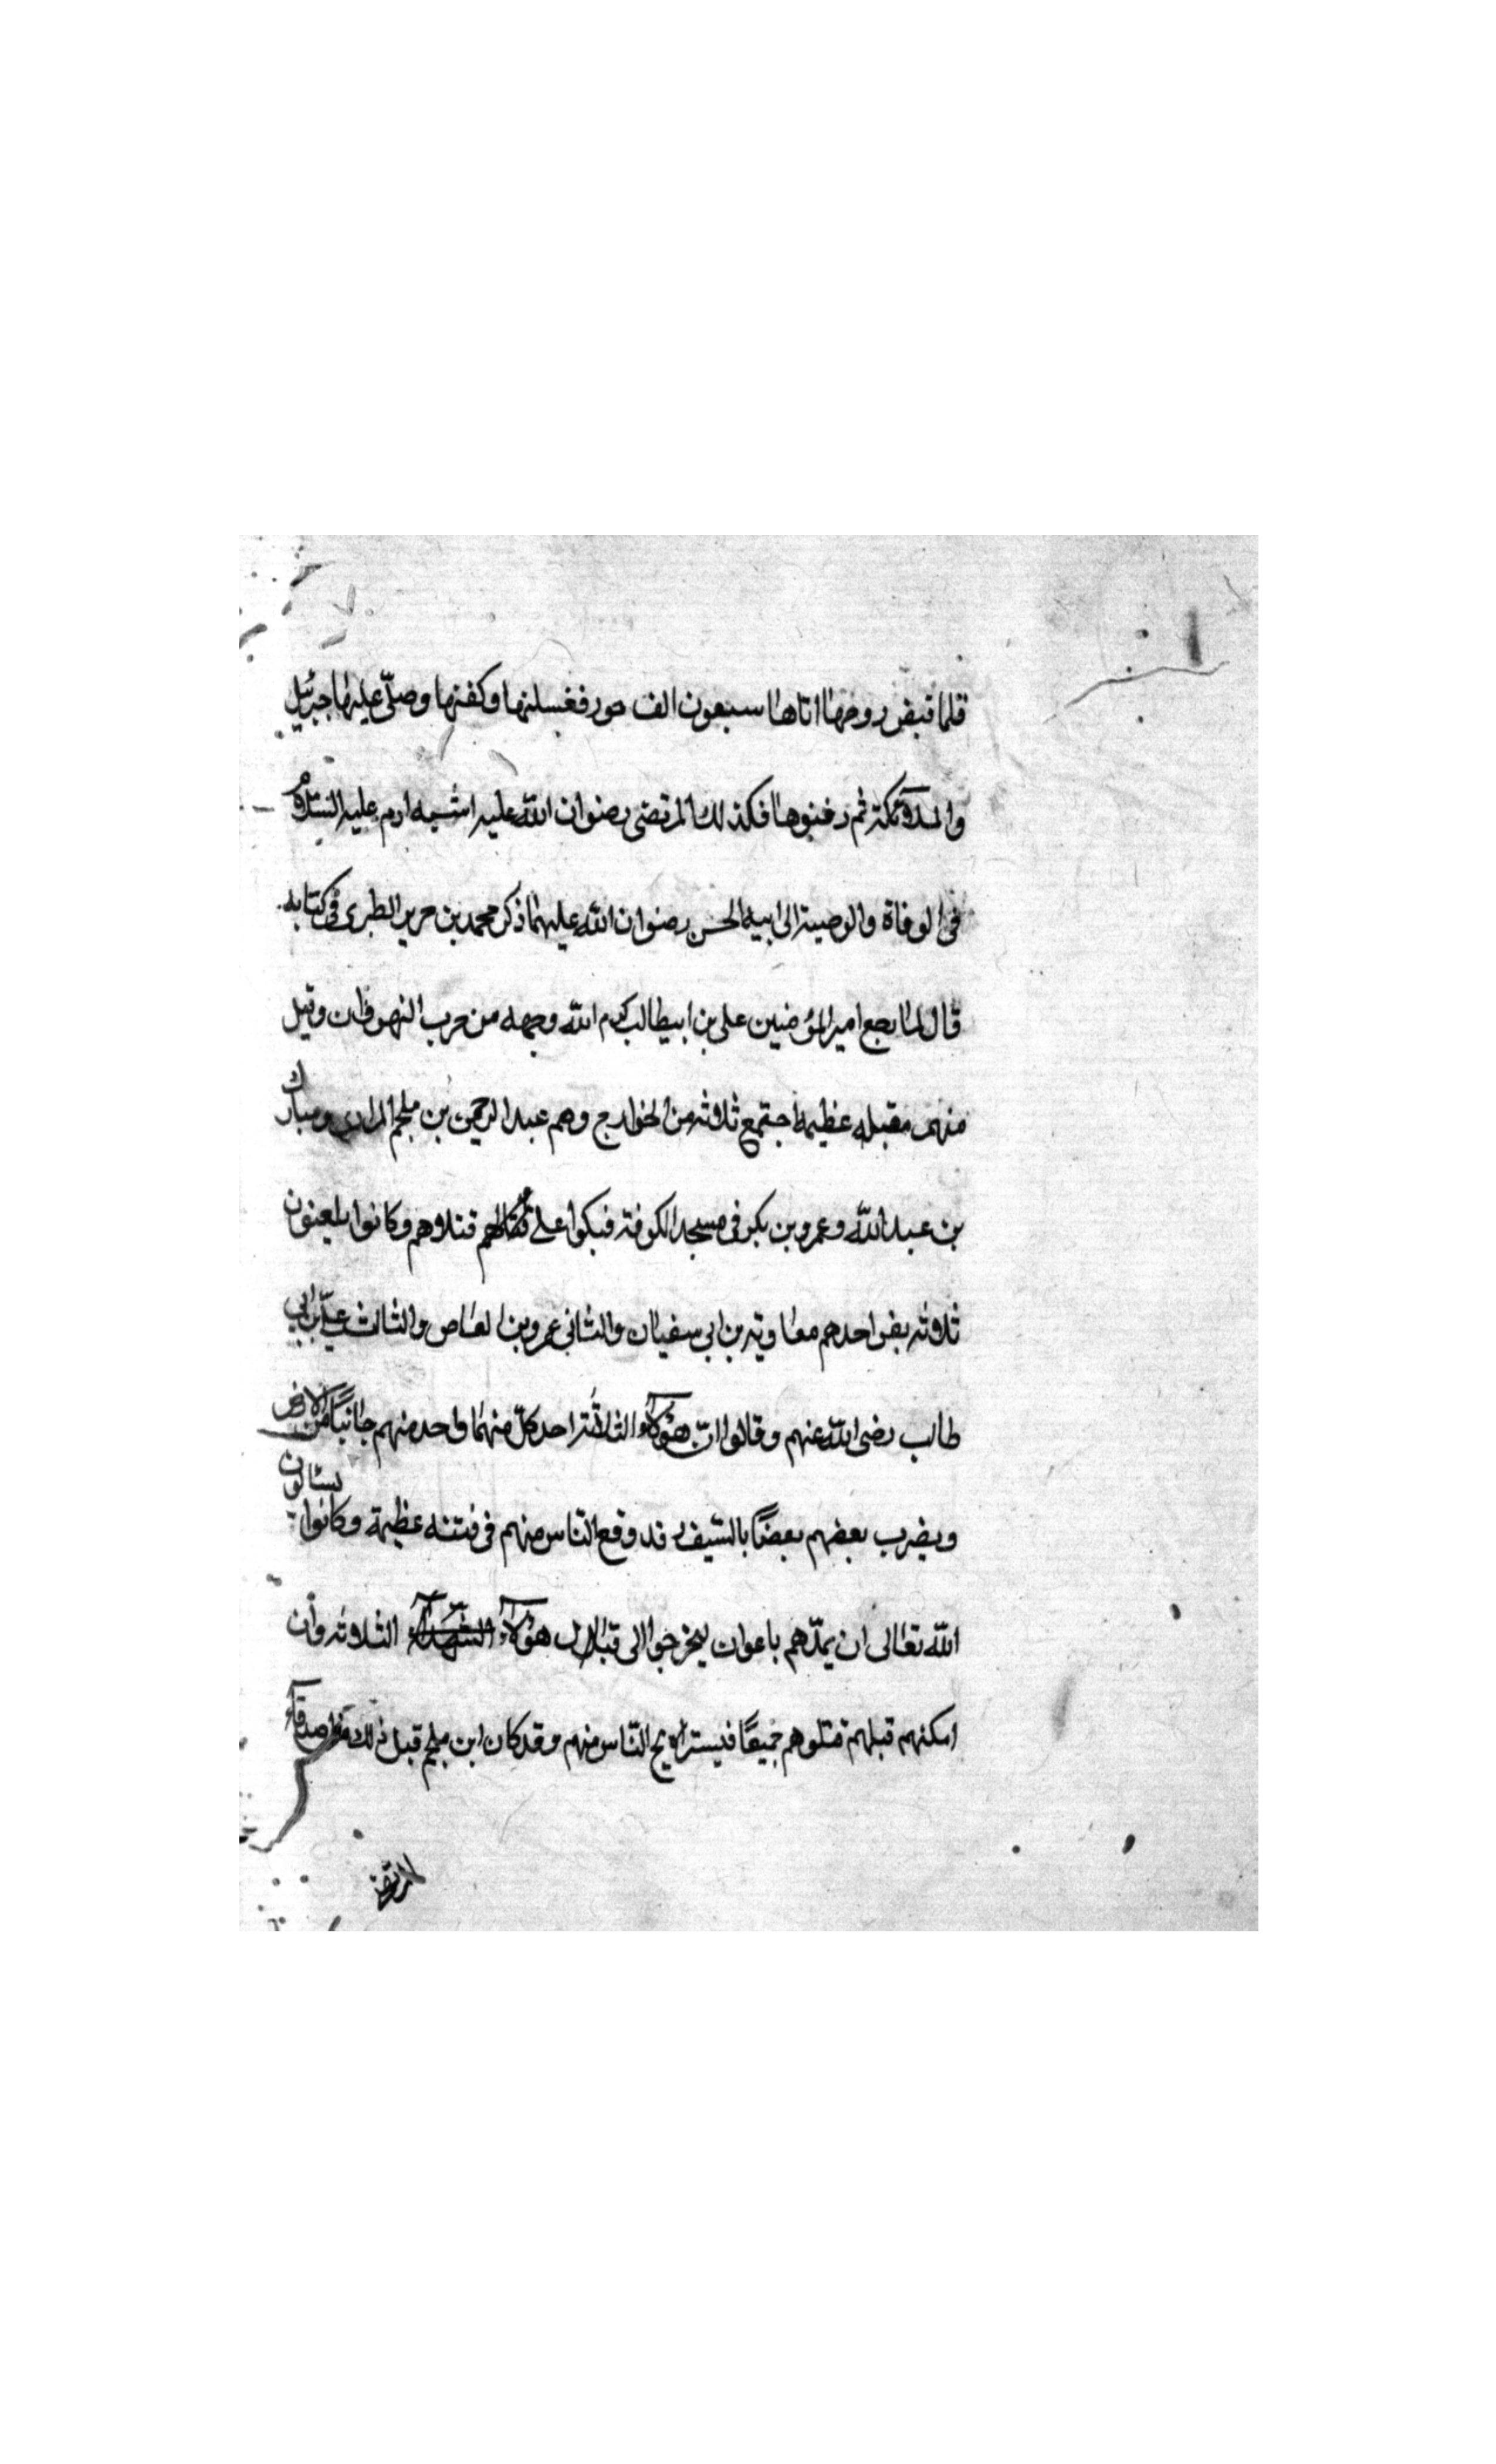 فلما قبض روحها اتاها سبعون الف حور فغسلنها وكفنها وصلّى عليها جبرئيل
والملائكة ثم دفنوها فكذلك المرتضى رضوان اللّه عليه اشبه ادم عليه السّلام
فى الوفاة والوصية الى ابيه الحسن رضوان اللّه عليهما ذكر محمد بن جرير الطبرى فى كتابه
قال لما رجع امير المؤمنين على بن ابيطالب كرم اللّه وجهه من حرب النهروان وقتل
منهم مقتله عظيمه اجتمع ثلاثه من الخوارج وهم عبد الرحمن بن ملجم المرادى ومبارك
بن عبد اللّه وعمرو بن بكر فى مسجد الكوفة فبكوا على قتلاهم وكانوا يلعنون
ثلاثه نفر احدهم معاوية بن ابى سفيان والثانى عمرو بن العاص والثالث علىّ بن ابى
طالب رضى اللّه عنهم وقالوا انّ هؤلآء الثلاثة احد كلّ منهما واحد منهم جانبًا من الارض
ويضرب بعضهم بعضًا بالسّيف قد وقع النّاس منهم فى فتنه عظيمة وكانوا يسئالون
اللّه تعالى ان يمدّهم باعوان ليخرجوا الى قتال هؤلآء الثلاثه وان
امكنهم قتلهم قتلوهم جميعًا فيستراح النّاس منهم وقد كان ابن ملجم قبل ذلك